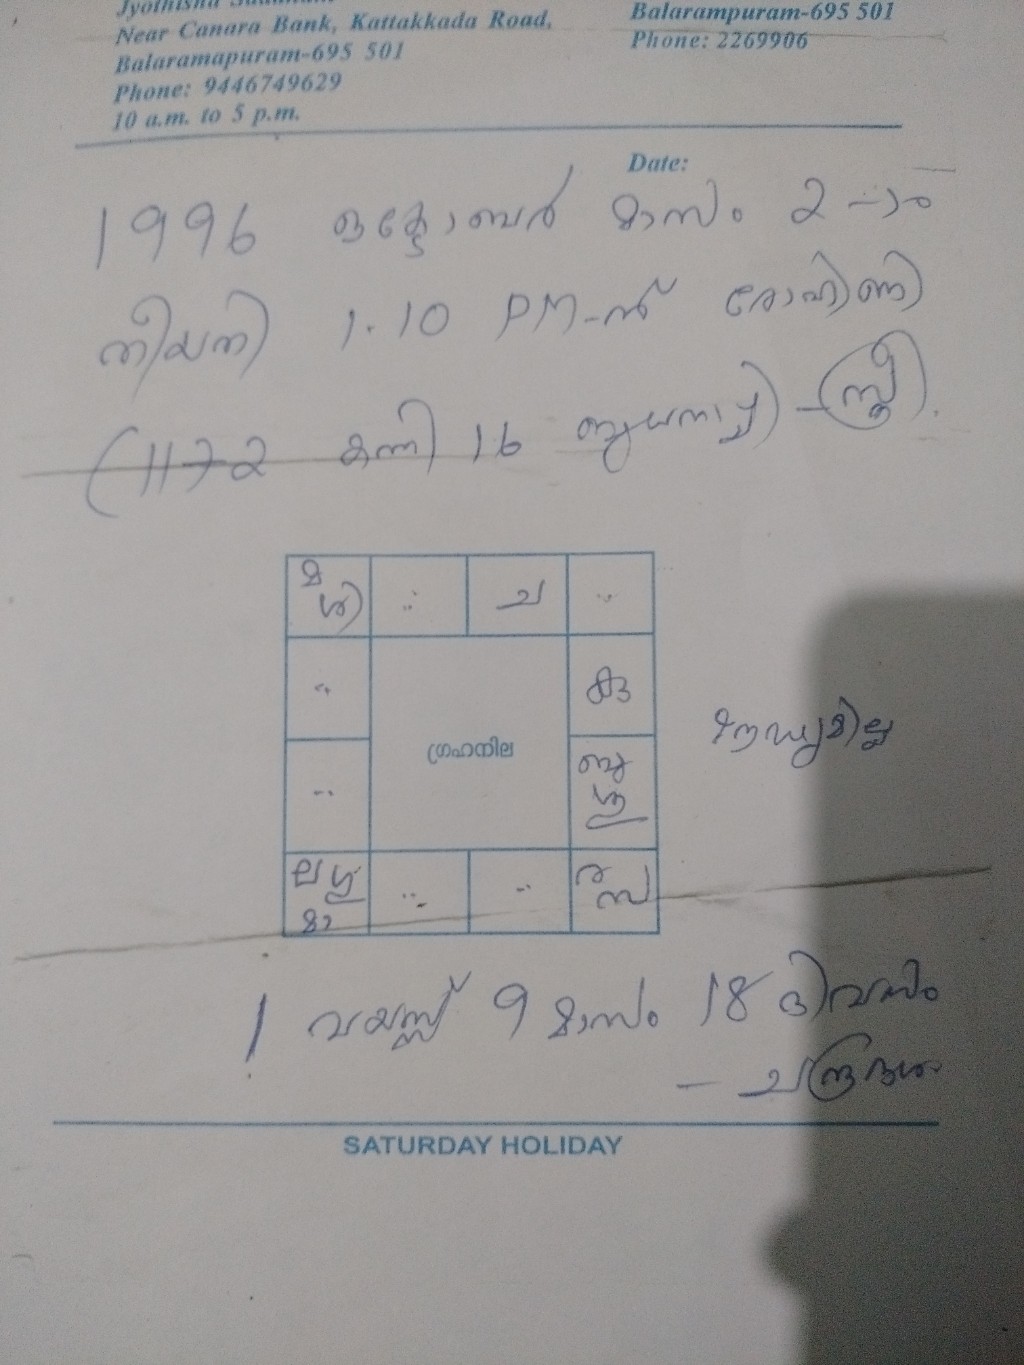 Near Canara Bank, Kattakkada Road,
Balaramapuram-695 501
Phone: 9446749629
10 a.m. to 5 p.m.
Balarampuram-695 501
Phone: 2269906
Date:
1996 ഒക്ടോബർ മാസം 2-ാം
തീയതി 1.10 PM-ന് രോഹിണി
(1172 കന്നി 16 ബുധനാഴ്ച) - (സ്ത്രീ).
മ ശി : ച :
: കു
ഗ്രഹനില
: ബു ശു
ല ഗു മാ : : ര സ
1 വയസ്സ് 9 മാസം 18 ദിവസം
- ചന്ദ്രദശ
SATURDAY HOLIDAY